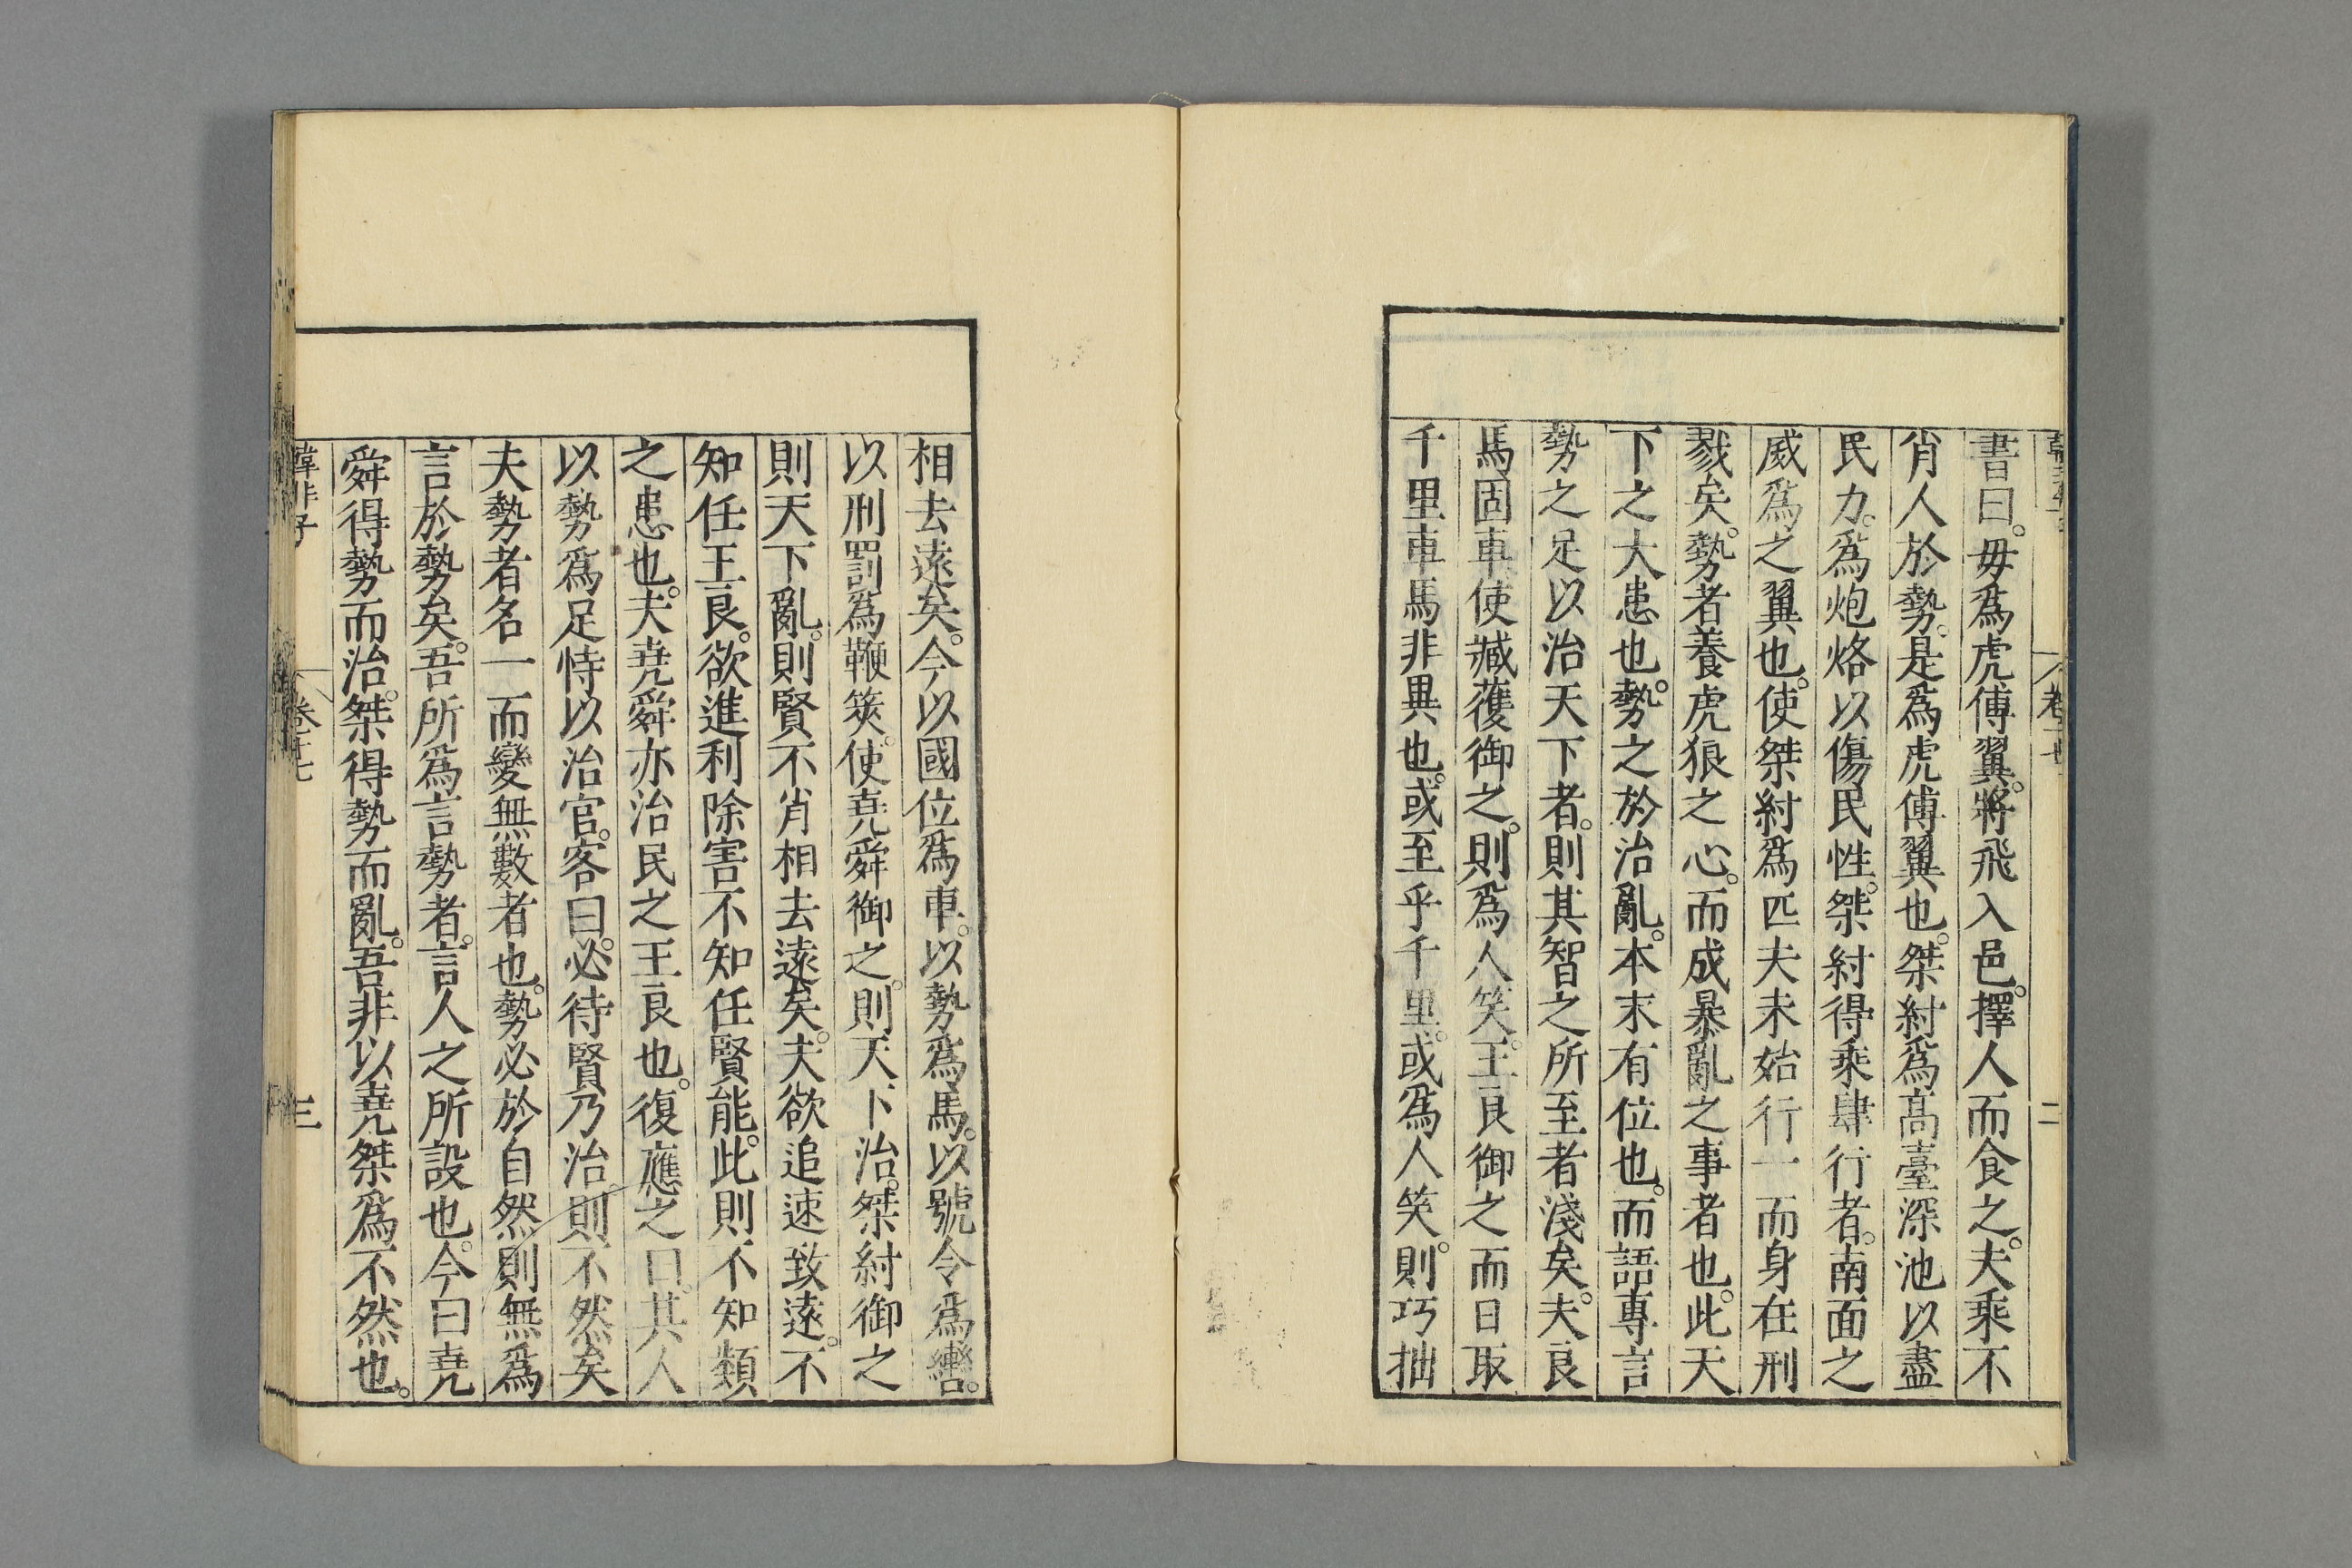 書曰。毋爲虎傅翼。將飛入邑。擇人而食之。夫乘不
肖人於勢。是爲虎傅翼也。桀紂爲高臺深池以盡
民力。爲炮烙以傷民性。桀紂得乘肆行者。南面之
威爲之翼也。使桀紂爲匹夫未始行一而身在刑
戮矣。勢者養虎狼之心。而成暴亂之事者也。此天
下之大患也。勢之於治亂。本末有位也。而語專言
勢之足以治天下者。則其智之所至者淺矣。夫良
馬固車使臧獲御之。則爲人笑。王良御之而日取
千里車馬非異也。或至乎千里。或爲人笑。則巧拙
相去遠矣。今以國位爲車。以勢爲馬。以號令爲轡。
以刑罰爲鞭筴。使堯舜御之。則天下治。桀紂御之
則天下亂。則賢不肖相去遠矣。夫欲追速致遠。不
知任王良。欲進利除害不知任賢能。此則不知類
之患也。夫堯舜亦治民之王良也。復應之曰。其人
以勢爲足恃以治官。客曰。必待賢乃治。則不然矣
夫勢者名一而變無數者也。勢必於自然則無爲
言於勢矣。吾所爲言勢者。言人之所設也。今曰堯
舜得勢而治。桀得勢而亂。吾非以堯桀爲不然也。
韓非子 卷十七 三